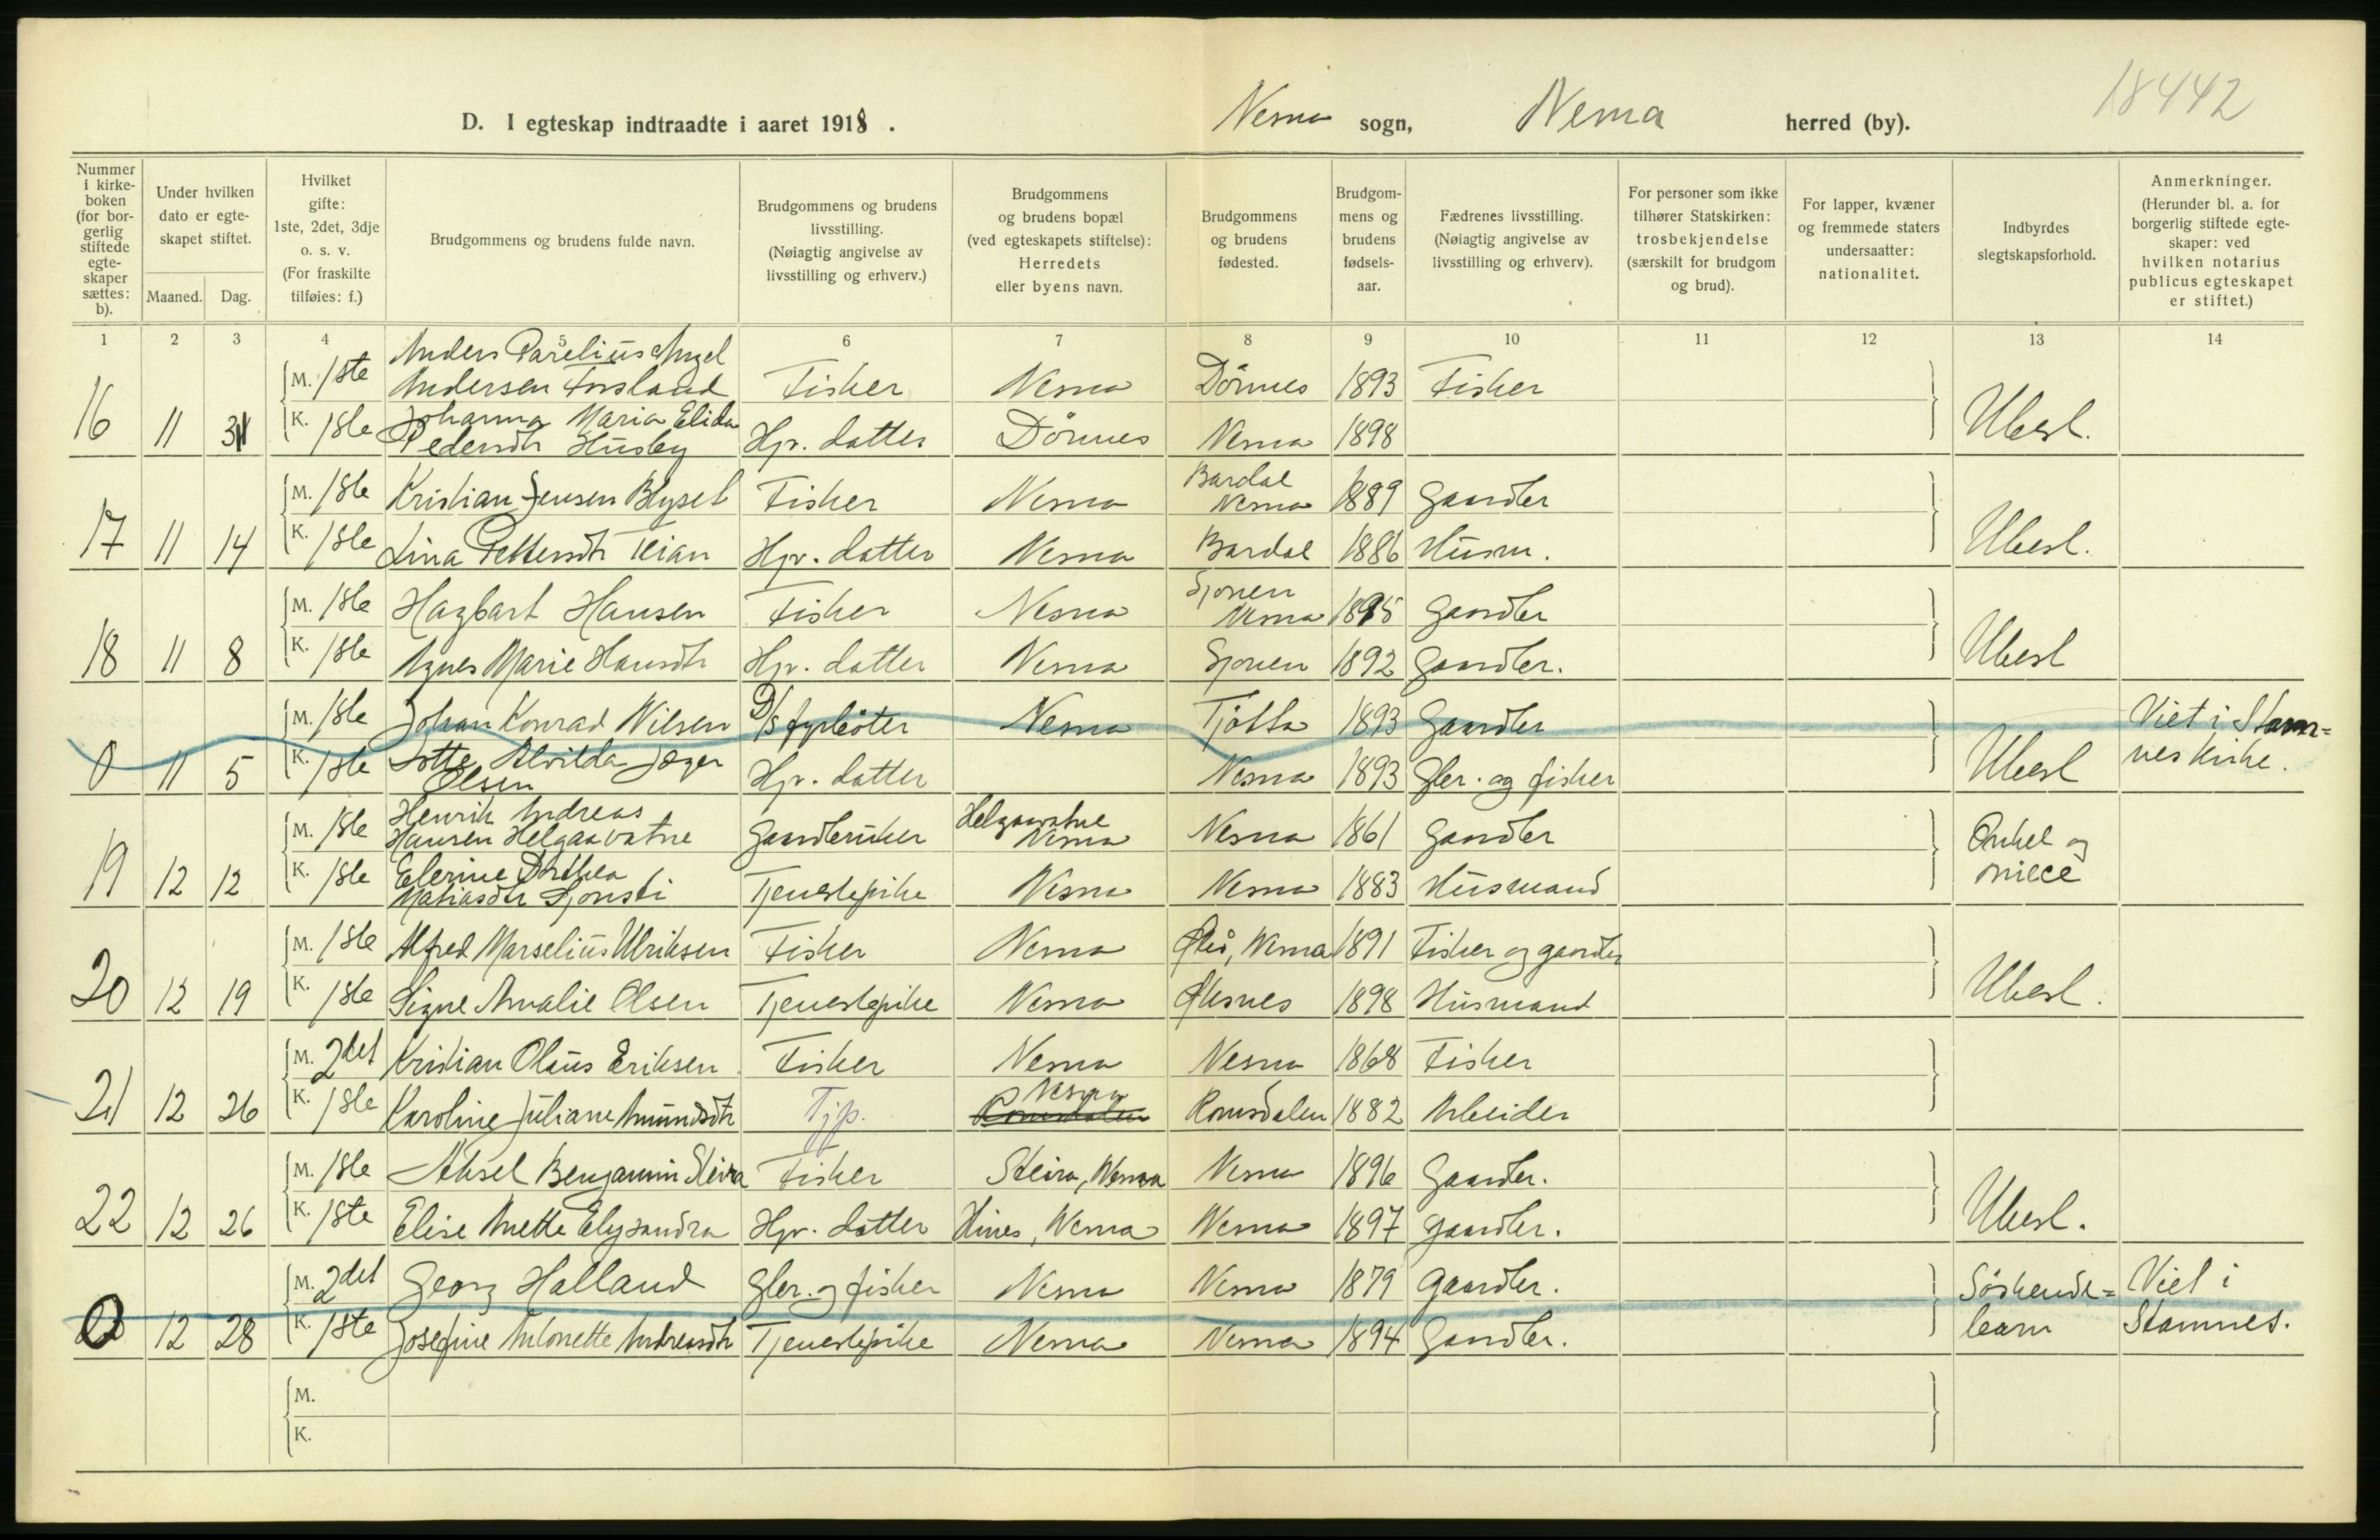 18442
D. I egteskap indtraadte i aaret 1918. Nesna sogn, Nesna herred (by).
Nummer i kirkeboken (for borgerlig stiftede egteskaper sættes: b).
Under hvilken dato er egteskapet stiftet.
Maaned. Dag.
Hvilket gifte: 1ste, 2det, 3dje o. s. v. (For fraskilte tilføies: f.)
Brudgommens og brudens fulde navn.
Brudgommens og brudens livsstilling. (Nøiagtig angivelse av livsstilling og erhverv.)
Brudgommens og brudens bopæl (ved egteskapets stiftelse): Herredets eller byens navn.
Brudgommens og brudens fødested.
Brudgommens og brudens fødselsaar.
Fædrenes livsstilling. (Nøiagtig angivelse av livsstilling og erhverv).
For personer som ikke tilhører Statskirken: trosbekjendelse (særskilt for brudgom og brud).
For lapper, kvæner og fremmede staters undersaatter: nationalitet.
Indbyrdes slegtskapsforhold.
Anmerkninger. (Herunder bl. a. for borgerlig stiftede egteskaper: ved hvilken notarius publicus egteskapet er stiftet.)
1 2 3 4 5 6 7 8 9 10 11 12 13 14
Anders Parelius Angel
M. 1ste Andersen Forsland Fisker Nesna Dönnes 1893 Fisker
Johanna Maria Elida
16 11 K. 1ste Pedersdtr Husby Hpr. datter Dönnes Nesna 1898 Ubesl.
Bardal
M. 1ste Kristian Jensen Blyset Fisker Nesna Nesna 1889 Gaardbr
17 11 14 K. 1ste Lina Pettersdtr Teian Hpr. datter Nesna Bardal 1886 Husm. Ubesl.
Sjonen
M. 1ste Hagbart Hansen Fisker Nesna Nesna 1895 Gaardbr
18 11 8 K. 1ste Agnes Marie Hansdtr Hpr. datter Nesna Sjonen 1892 Gaardbr. Ubesl
M. 1ste Johan Konrad Nilsen D/S fyrböter Nesna Tjötta 1893 Gaardbr Viet i Stam=
0 11 5 K. 1ste Lotte Alvilda Jæger Olsen Hpr. datter Nesna 1893 Gbr. og fisker Ubesl nes kirke.
Henrik Andreas Helgaavatne
M. 1ste Hansen Helgaavatne Gaardbruker Nesna Nesna 1861 Gaardbr Onkel og
Elerine Dorthea
19 12 12 K. 1ste Matiasdtr Sjonsti Tjenestepike Nesna Nesna 1883 Husmand niece
M. 1ste Alfred Marselius Ulriksen Fisker Nesna Nesna 1891 Fisker og gaardbr
20 12 19 K. 1ste Signe Amalie Olsen Tjenestepike Nesna Øksnes 1898 Husmand Ubesl.
M. 2det Kristian Olaus Eriksen Fisker Nesna Nesna 1868 Fisker
Nesna
21 12 26 K. 1ste Karoline Juliane Amundsdtr Tjp. Romsdalen Romsdalen 1882 Arbeider
M. 1ste Aksel Benjamin Steira Fisker Steira, Nesna Nesna 1896 Gaardbr.
22 12 26 K. 1ste Elise Anette Elysandra Hpr. datter Nesna Nesna 1897 Gaardbr. Ubesl.
M. 2det Georg Halland Gbr. og fisker Nesna Nesna 1879 Gaardbr. Söskende= Viet i
0 12 28 K. 1ste Josefine Antonette Andreasdtr Tjenestepike Nesna Nesna 1894 Gaardbr. barn Stamnes.
M.
K.